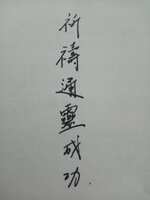 祈禱通靈成功